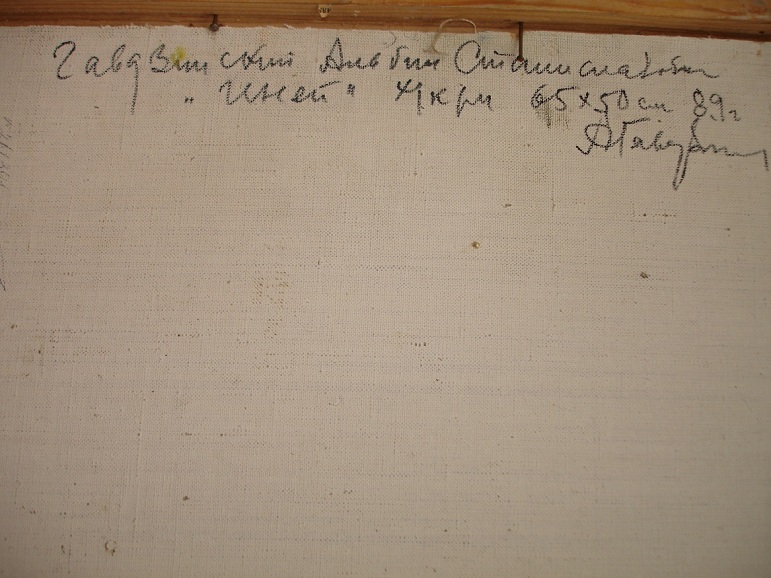 Гавдзинский Альбин Станиславович
"Иней" 65х50см 89г
АГавдзин